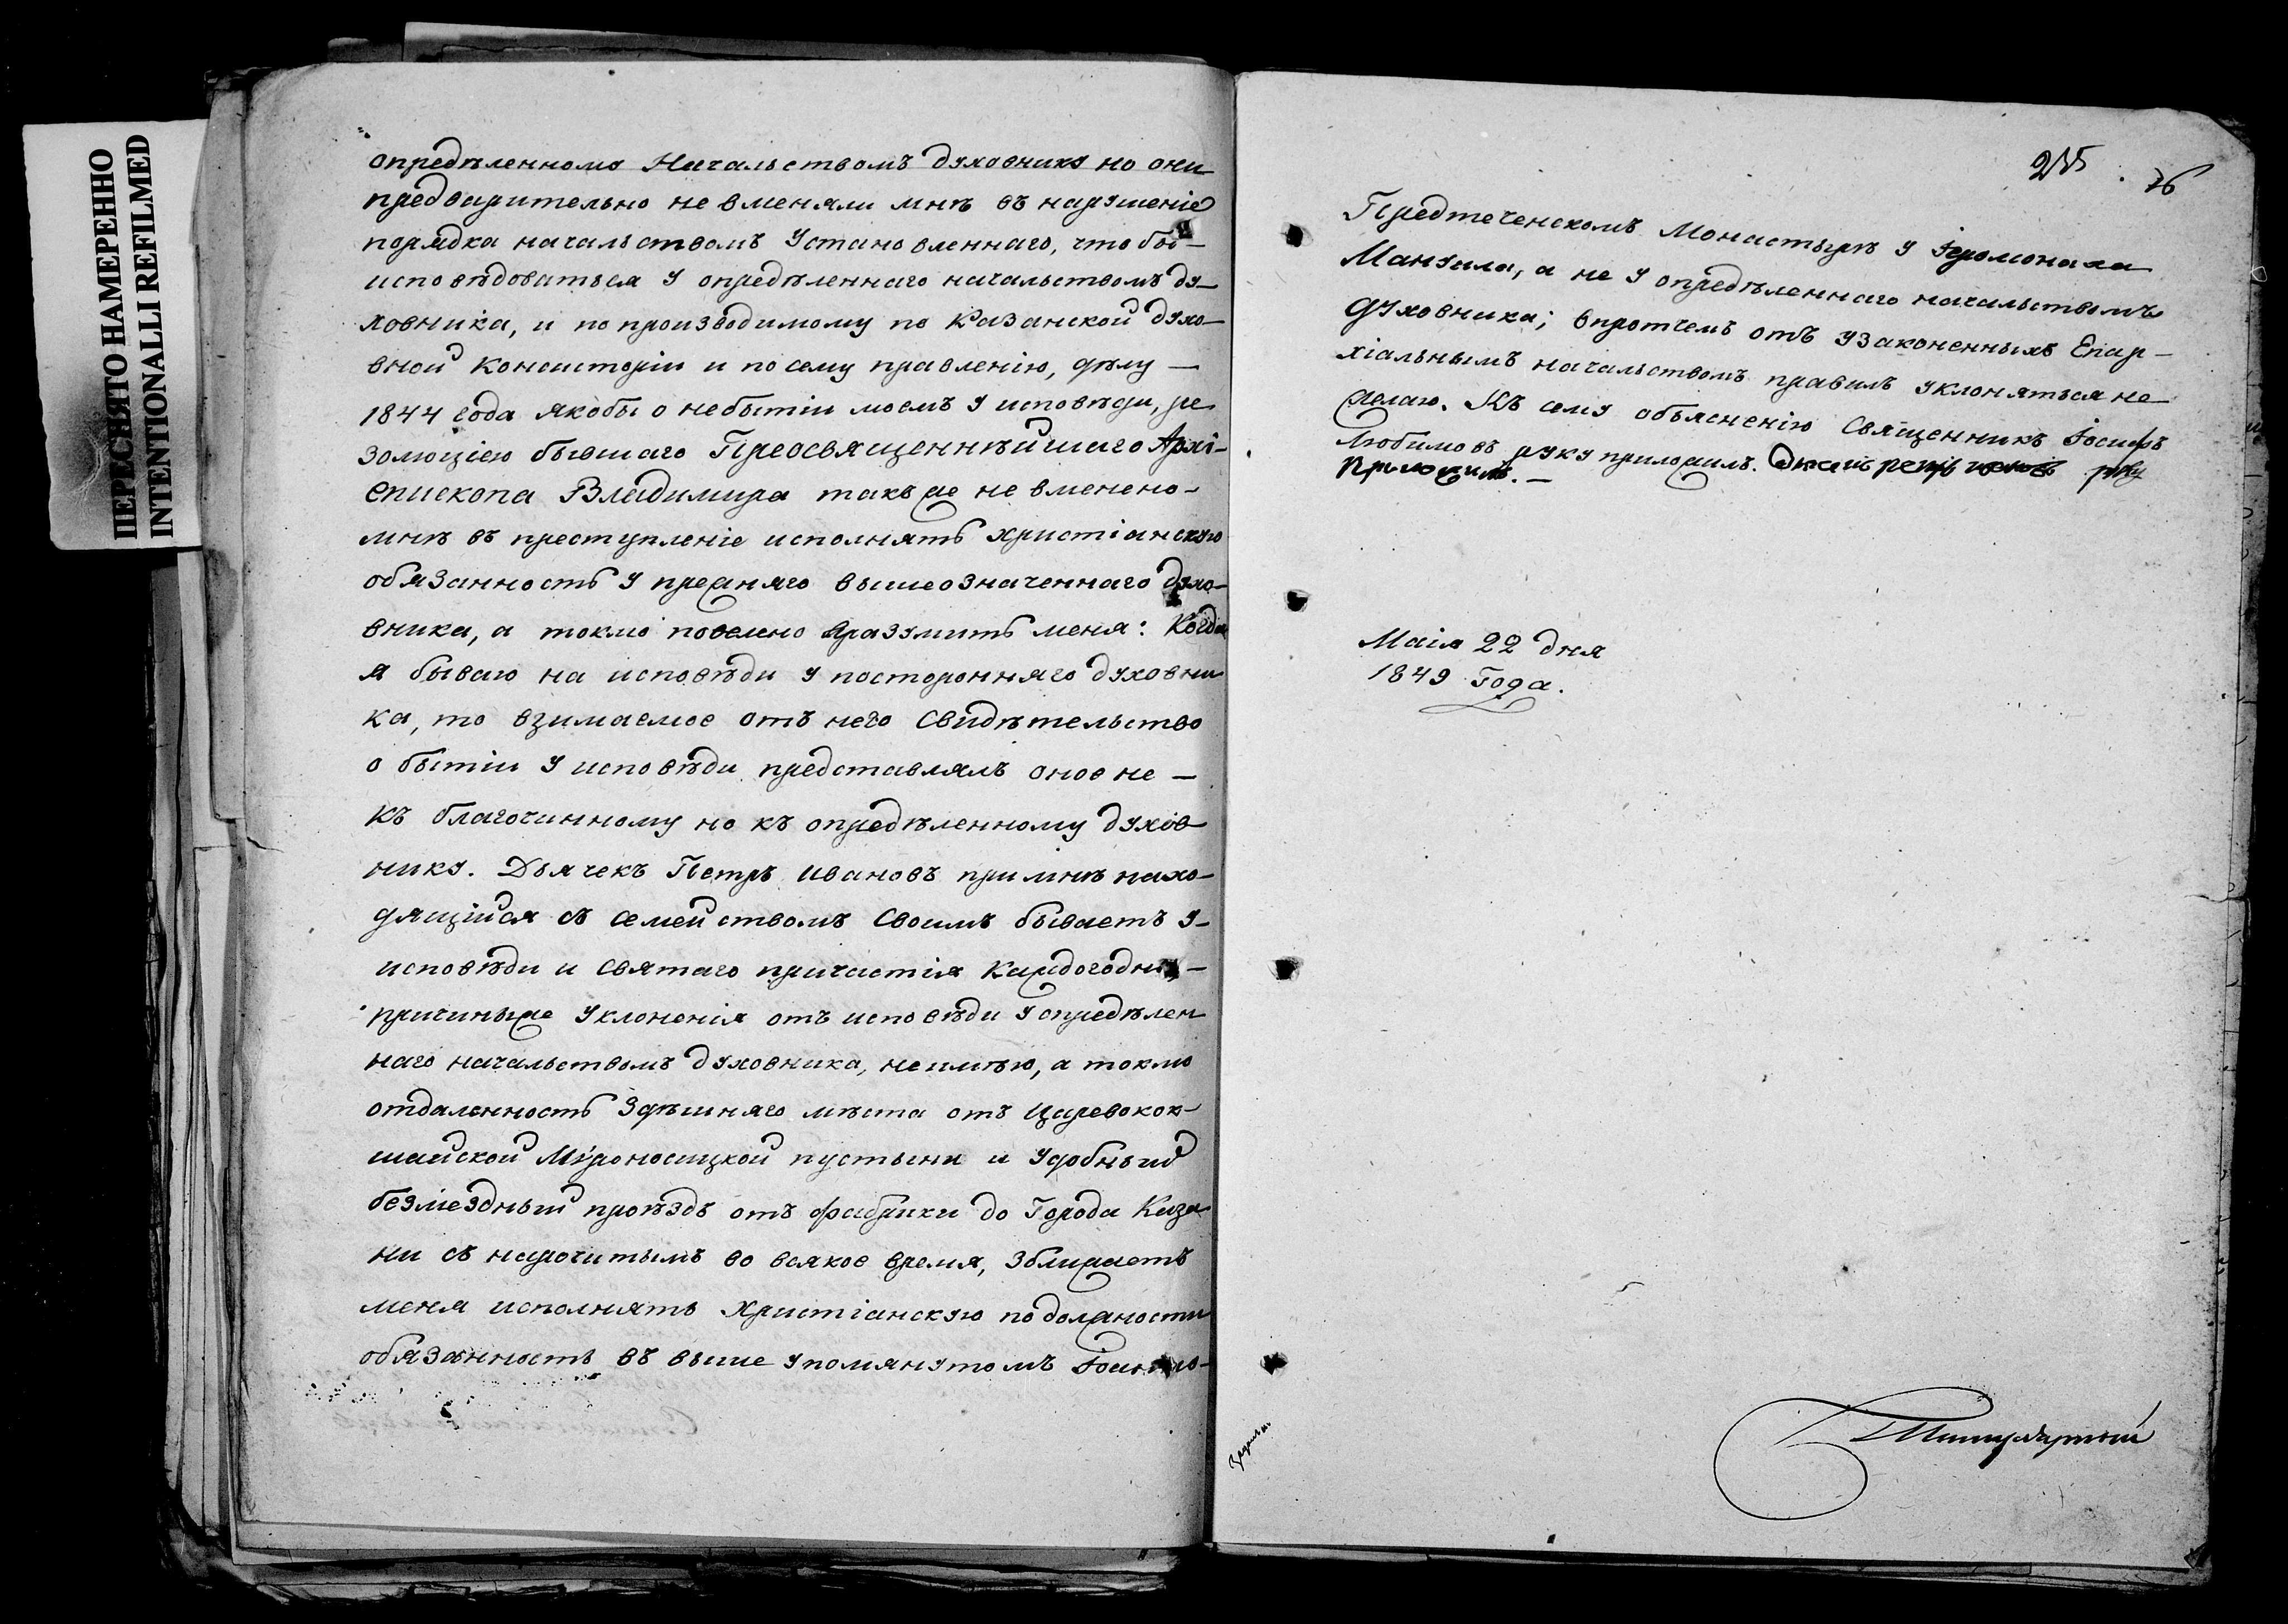 ПЕРЕСНЯТО НАМЕРЕННО
INTENTIONALLI REFILMED
опредѣленному Начальствомъ духовнику но они
предварительно не вменяли мнѣ въ нарушеніе
порядка начальствомъ установленнаго, что бы —
исповѣдоваться у опредѣленнаго начальствомъ ду—
ховника, и по производимому по Казанской духо—
вной Консисторіи и по сему правленію, дѣлу —
1844 года якобы о небытіи моемъ у исповѣди, ре
золюціею бывшаго Преосвященнѣйшаго Архі-
епископа Владимира такъ же не вменено-
мнѣ въ преступленіе исполнять христіанскую
обязанность у прежняго вышеозначеннаго духо-
вника, а токмо повелено вразумить меня: Когда
я бываю на исповѣди у посторонняго духовни
ка, то взимаемое отъ него свидѣтельство
о бытіи у исповѣди представлялъ оное не —
къ благочинному но къ опредѣленному духов
нику. Дьячекъ Петръ Ивановъ при мнѣ нахо-
дящійся съ семействомъ своимъ бываетъ у-
исповѣди и святаго причастія каждогодно, —
причины же уклоненія отъ исповѣди у опредѣлен
наго начальствомъ духовника, неимѣю, а токмо
отдаленность здѣшняго мѣста отъ Царевокок-
шайской Мѵроносицкой пустыни и удобный
безмездный проѣздъ отъ фабрики до Города Каза
ни съ нарочитымъ во всякое время, зближаетъ
меня исполнять христіанскую по должности
обязанность въ выше упомянутомъ Іоанно-
76
Предтеченскомъ Монастырѣ у Іеромонаха
Мануила, а не у опредѣленнаго начальствомъ
духовника; впротчемъ отъ узаконенныхъ Епар—
хіальнымъ начальствомъ правилъ уклоняться не
желаю. Къ сему объясненію Священникъ Іосифъ
Любимовъ руку приложилъ. руку
приложилъ. —
Маія 22 дня
1849 Года.
Титулярный